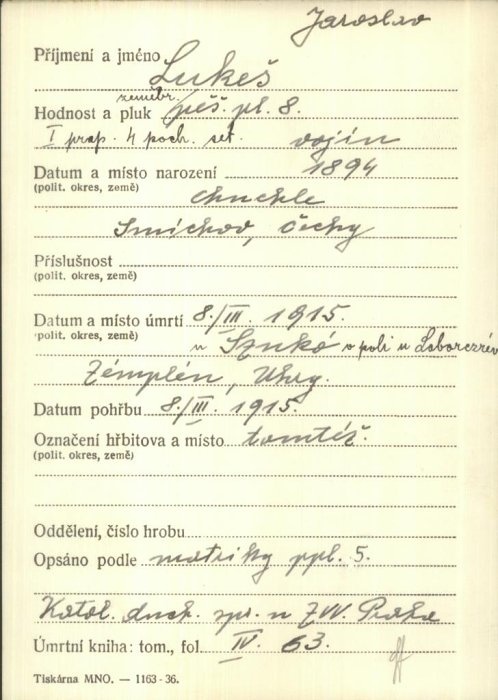 Jaroslav
Příjmení a jméno Lukeš
zeměbr.
Hodnost a pluk pěš. pl. 8.
I prap. 4 poch. set. vojín
Datum a místo narození 1894
(polit. okres, země) Chuchle
Smíchov, Čechy
Příslušnost
(polit. okres, země)
Datum a místo úmrtí 8./III. 1915.
(polit. okres, země) u Szukó v poli u Laborczrév
Zémplén, Uhry.
Datum pohřbu 8./III. 1915.
Označení hřbitova a místo tamtéž.
(polit. okres, země)
Oddělení, číslo hrobu
Opsáno podle matriky ppl. 5.
Katol. duch. spr. u ZVV. Praha
Úmrtní kniha: tom., fol. IV. 63.
Tiskárna MNO. — 1163-36.